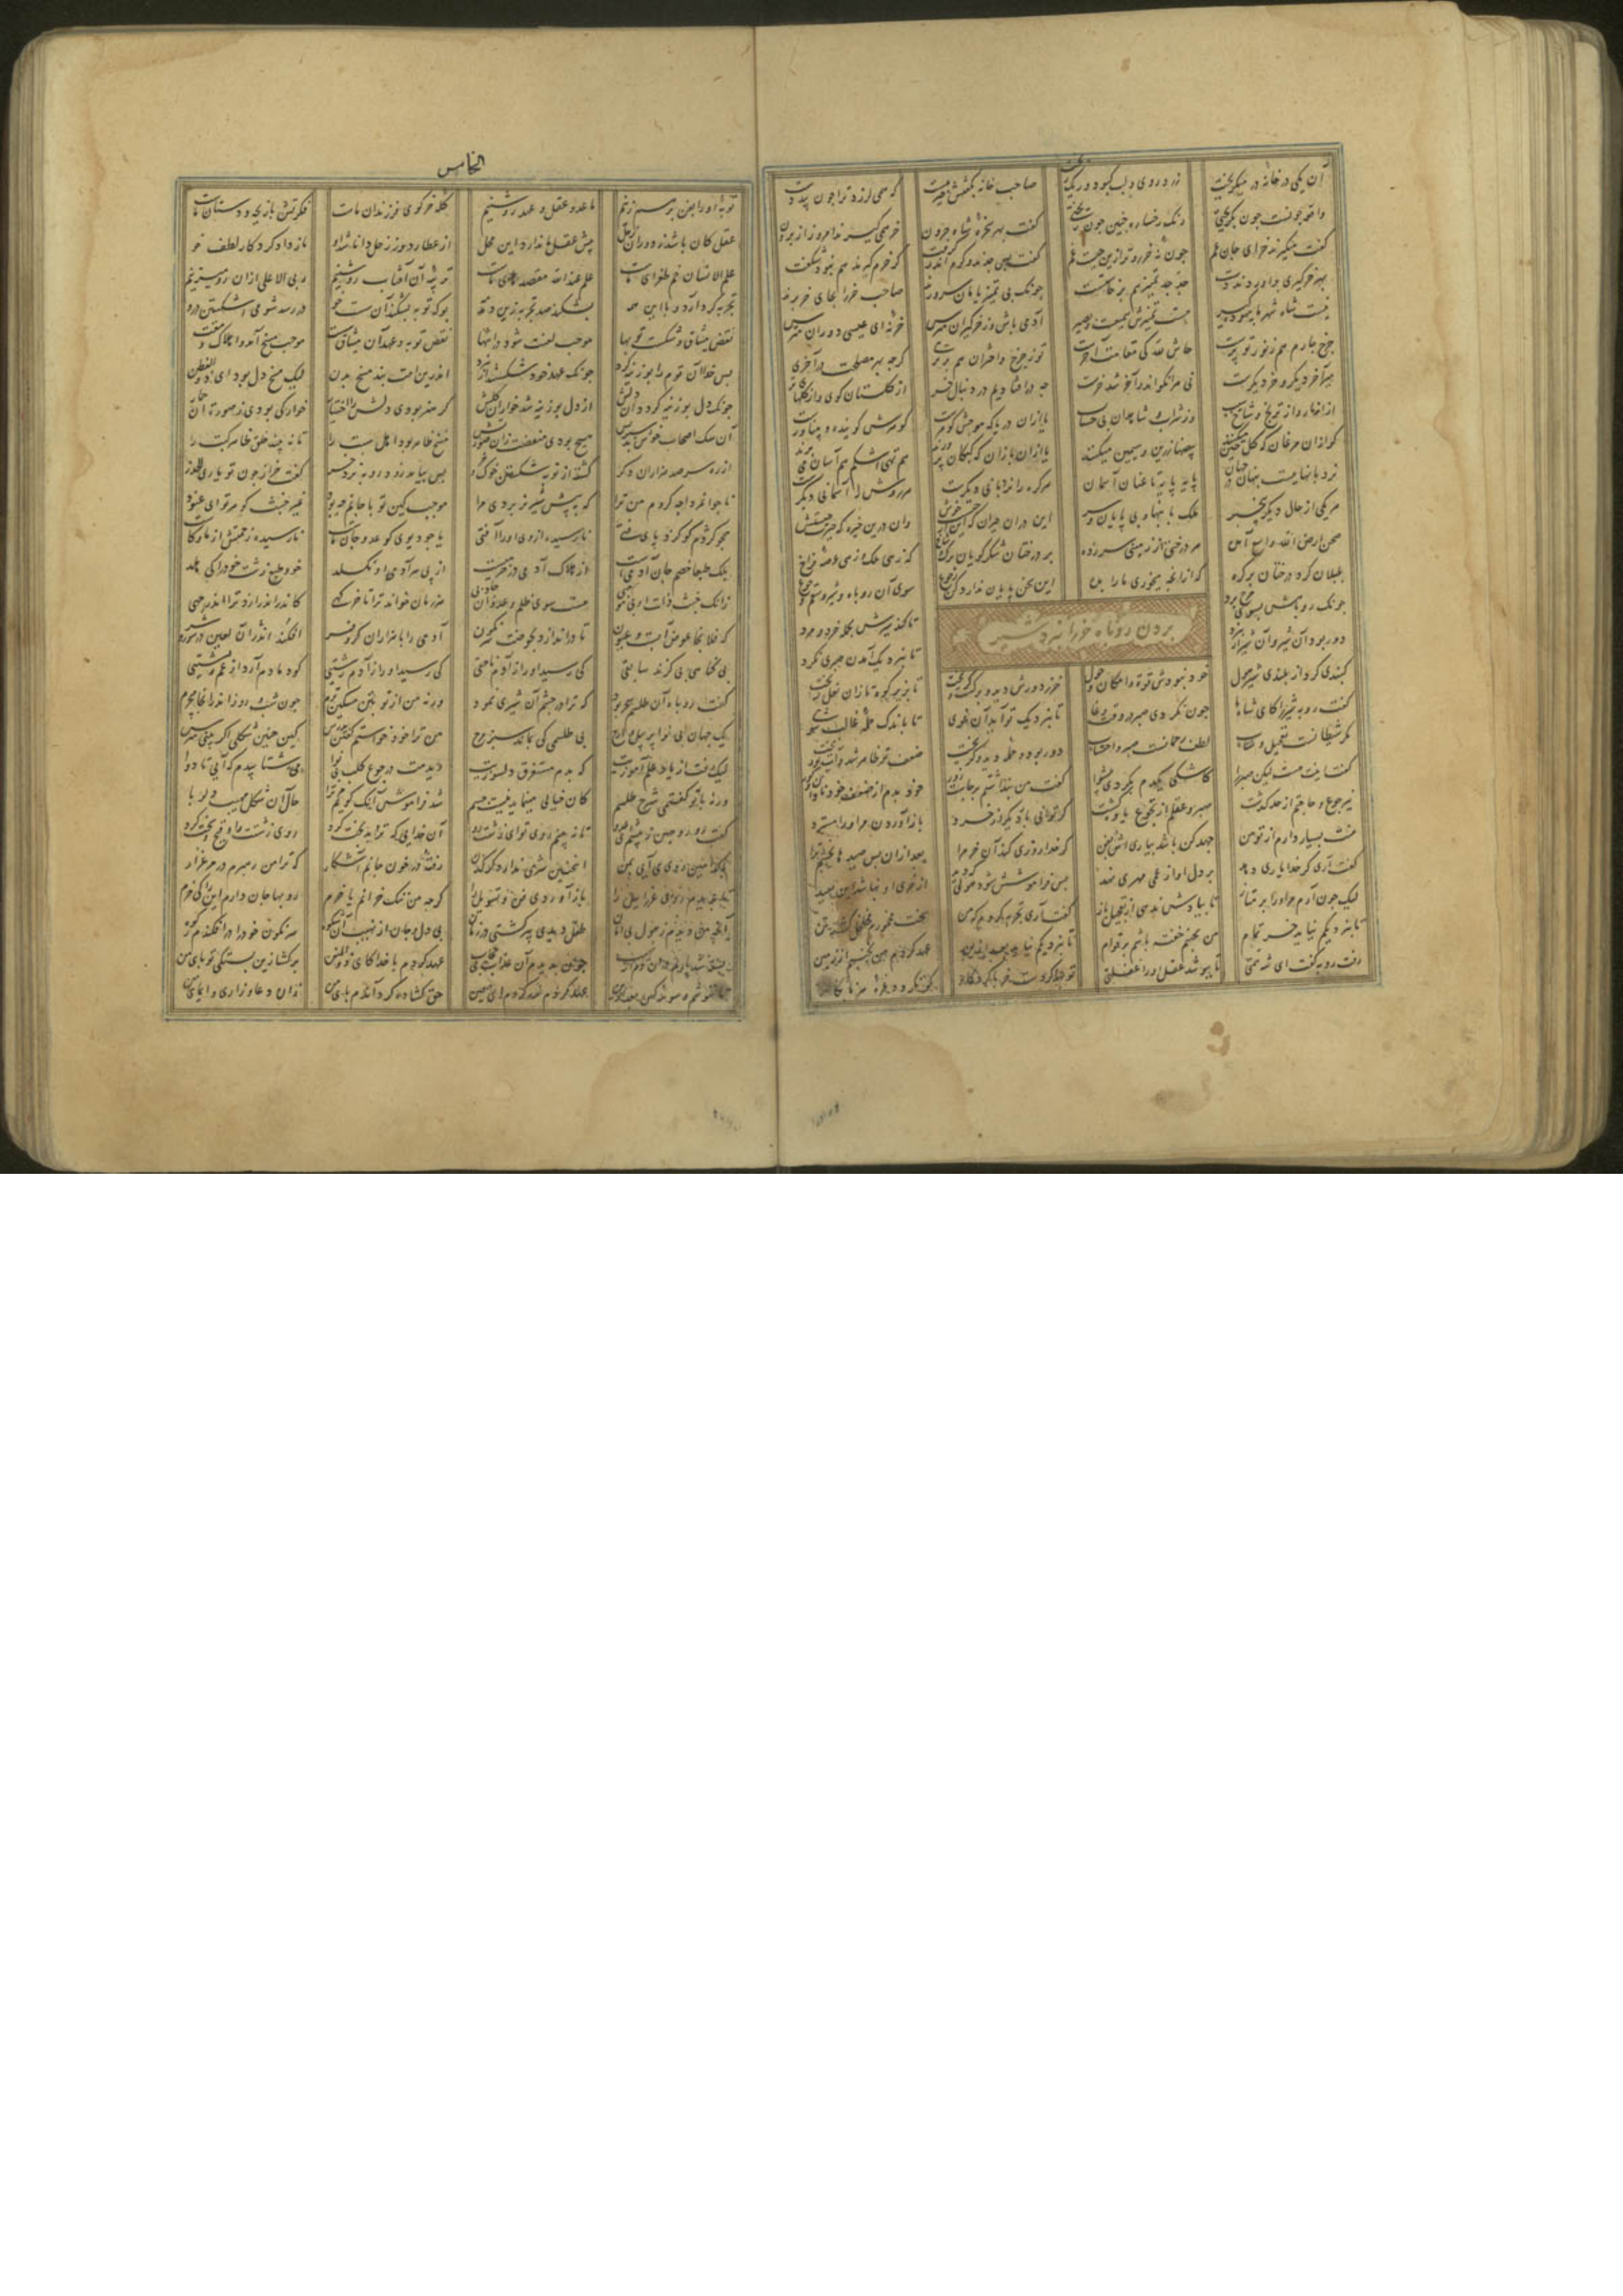 آن یکی در خانه در میکریخت زرد روی و لب کبود و رنک ریخت صاحب خانه بکفتش خیر هست که همی لرزد ترا چون پیر دست
واقعه چونست چون بکریختی رنک رخساره چنین چون ریختی کفت بهر سخره شاه حرون خر همی کیرند امروز از برون
کفت میکیرند خر ای جان عم چون نه خر رو ترا زین چیست غم کفت بس جدند و کرم اندر کرفت کر خرم کیرند هم نبود شکفت
بهر خرکیری بر آوردند دست جد جد تمییز هم برخاستست چونک بی تمییزیان مان سرورند صاحب خر را بجای خر برند
نیست شاه شهر ما بیهوده کیر هست تمییزش سمیعست و بصیر آدمی باش و ز خرکیران مترس خر نه ای عیسی دوران مترس
چرخ چارم هم ز نور تو پرست حاش لله کی مقامت آخرست تو ز چرخ و اختران هم برتری کرچه بهر مصلحت در آخری
میر آخر دیکر و خر دیکرست نی هر انکو اندر آخر شد خرست چه در افتادیم در دنبال خر از کلستان کوی و از کلهای تر
از انار و از ترنج و شاخ سیب وز شراب و شاهدان بی حساب یا از ان دریا که موجش کوهرست کوهرش کوینده و بیناورست
یا از ان مرغان که کل چین میکنند بیضها زرین و سیمین میکنند یا از ان بازان که کبکان پرورند هم اشکم هم می پرند
نردبانهاییست پنهان در جهان پایه پایه تا عنان آسمان هر کره را نردبانی دیکرست هر روش را آسمانی دیکرست
هر یکی از حال دیکر بیخبر ملک با پهنا و بی پایان و سر این در ان حیران که این از چیست خوش وان درین خیره که حیرت چیستش
صحن ارض الله واسع آمده هر درختی از زمینی سر زده بر درختان شکر کویان برک و شاخ که زهی ملک و زهی عرصه فراخ
بلبلان کرد درختان پر کره که از انچه میخوری ما را بده این سخن پایان ندارد کن رجوع سوی آن روباه و شیر و سقم و جوع
بردن روباه خر را بنزد شیر
چونک روباهش بسوی مرج برد تا کند شیرش بحمله خرد و مرد
دور بود از شیر و آن شیر از نبرد تا بنزدیک آمدن صبری نکرد
کنبدی کرد از بلندی شیر هول خود نبودش قوة و امکان و حول خر ز دورش دید و برکشت و کریخت تا بزیر کوه تازان نعل ریخت
کفت روبه شیر را کای شاه ما چون نکردی صبر در وقت وغا تا بنزدیک تو آید آن غوی تا باندک حمله غالب شوی
مکر شیطانست تعجیل و شتاب لطف رحمانست صبر و احتساب دور بود و حمله دید و کریخت ضعف تو ظاهر شد و آب تو ریخت
کفت من پنداشتم برجاست زور خود بدم از ضعف خود نادان و کور
نیز جوع و حاجتم از حد کذشت صبر و عقلم از تجوع یاوه کشت کر توانی بار دیکر از خرد باز آوردن مر او را مسترد
منت بسیار دارم از تو من جهد کن باشد بیاری اش بفن کر خدا روزی کند آن خر مرا بعد از ان بس صیدها بخشم ترا
کفت آری کر خدا یاری دهد بر دل او از عمی مهری نهد بس فراموشش شود هولی که دید از خری او نباشد این بعید
لیک چون آرم مر او را بر متاز تا ببادش ندهی از تعجیل باز کفت آری تجربه کردم که من سخت رنجورم مخلخل کشته تن
تا بنزدیکم نیاید خر تمام من نجنبم خفته باشم بر قوام
رفت روبه کفت ای شه همتی تا بپوشد عقل او را غفلتی توبها کردست خر با کردکار که نکردد غره هر نابکار
الخامس
توبه او را بفن بر هم زنیم ما عدو عقل و عهد روشنیم کله خر کوی فرزندان ماست فکرتش بازیچه دستان ماست
عقل کان باشد ز دوران زحل پیش عقل ما ندارد این محل از عطارد وز زحل دانا شد او ما ز داد کردکار لطف خو
علم الانسان خم طغرای ماست علم عند الله مقصدهای ماست تربیه آن آفتاب روشنیم ربی الاعلی از ان رو میزنیم
تجربه کر دارد او با این همه بشکند صد تجربه زین دمدمه بوک توبه بشکند آن سست خو در رسد شومی اشکستن درو
نقض میثاق و شکست توبها موجب لعنت شود در انتها نقض توبه و عهد آن موجب مسخ آمد و اهلاک و مقت
بس خدا آن قوم را بوزینه کرد چونک عهد خود شکستند از نبرد اندرین امت نبد مسخ بدن لیک مسخ دل بود ای ذو الفطن
چونک دل بوزینه کردد آن دلش از دل بوزینه شد خوار آن کلش کر هنر بودی دلش را ز اختیار خوار کی بودی ز صورت آن حمار
آن سک اصحاب خوش بد سیرتش هیچ بودی منقصت زان صورتش مسخ ظاهر بود اهل سبت را تا ببیند خلق ظاهر کبت را
از ره سر صد هزاران دکر کشته از توبه شکستن خوک و خر بس بیامد زود روبه نزد خر کفت خر از چون تو یاری الحذر
ناجوانمردا چه کردم من ترا که به پیش شیر نر بردی مرا موجب کین تو با جانم چه بود غیر خبث کوهر تو ای عنود
همچو کژدم کو کزد پای فتی نارسیده از وی او را آفتی یا چو دیوی کو عدو جان ماست نارسیده زحمتش از ما و کاست
بلک طبعا خصم جان آدمیست از هلاک آدمی در خرمیست از پی هر آدمی او نکسلد خو و طبع زشت خود را کی هلد
زانک خبث ذات او بی موجبی هست سوی ظلم و عدوان جاذبی هر زمان خواند ترا تا خرکهی کاندر اندازد ترا اندر چهی
که فلانجا حوض آبست و عیون تا در اندازد بحوضت سرنکون آدمی را با هزاران کر و فر افکند اندر آن لعین در شور و شر
بی کناهی بی کزند سابقی کی رسید او را ز آدم ناحقی کی رسید او را ز آدم زشتیی کو دمادم آرد از غم پشتیی
کفت روباه آن طلسم سحر بود که ترا در چشم آن شیری نمود ورنه من از تو بتن مسکین ترم چون شب و روز اندر انجا میچرم
یک جهان بی نوا پر پیل و ارج بی طلسمی کی بماند سبز مرج من ترا خود خواستم کفتن بدرس کین چنین شکلی اکر بینی مترس
لیک رفت از یاد علم آموزیت که بدم مستغرق دلسوزیت دیدمت در جوع کلب و بی نوا می شتابیدم که آیی تا دوا
ورنه با تو کفتمی شرح طلسم کان خیالی مینماید نیست جسم شد فراموش آنک کویم مر ترا حال آن شکل مهیب دلربا
کفت رو رو هین ز پیشم ای عدو تا نبینم روی تو ای زشت رو آن خدایی که ترا بدبخت کرد روی زشتت را وقیح و سخت کرد
با کدامین روی می آیی بمن اینچنین سغری ندارد کرکدن رفته در خون جانم آشکار که ترا من رهبرم در مرغزار
تا بدیدم روی عزراییل را باز آوردی فن و تسویل را کرچه من ننک خرانم یا خرم روبها جان دارم این را کی خرم
آنچه من دیدم ز هول بی امان طفل دیدی پیر کشتی در زمان بی دل و جان از نهیب آن شکوه سرنکون خود را در افکندم ز کوه
بسته شد پایم در ان دم از چون بدیدم آن عذاب بی حجاب عهد کردم با خدا کای ذو المنن بر کشا زین بستکی تو پای من
تا ننوشم وسوسه کس بعد ازین عهد کردم نذر کردم ای معین حق کشاده کرد آندم پای من زان دعا و زاری و ایمای من